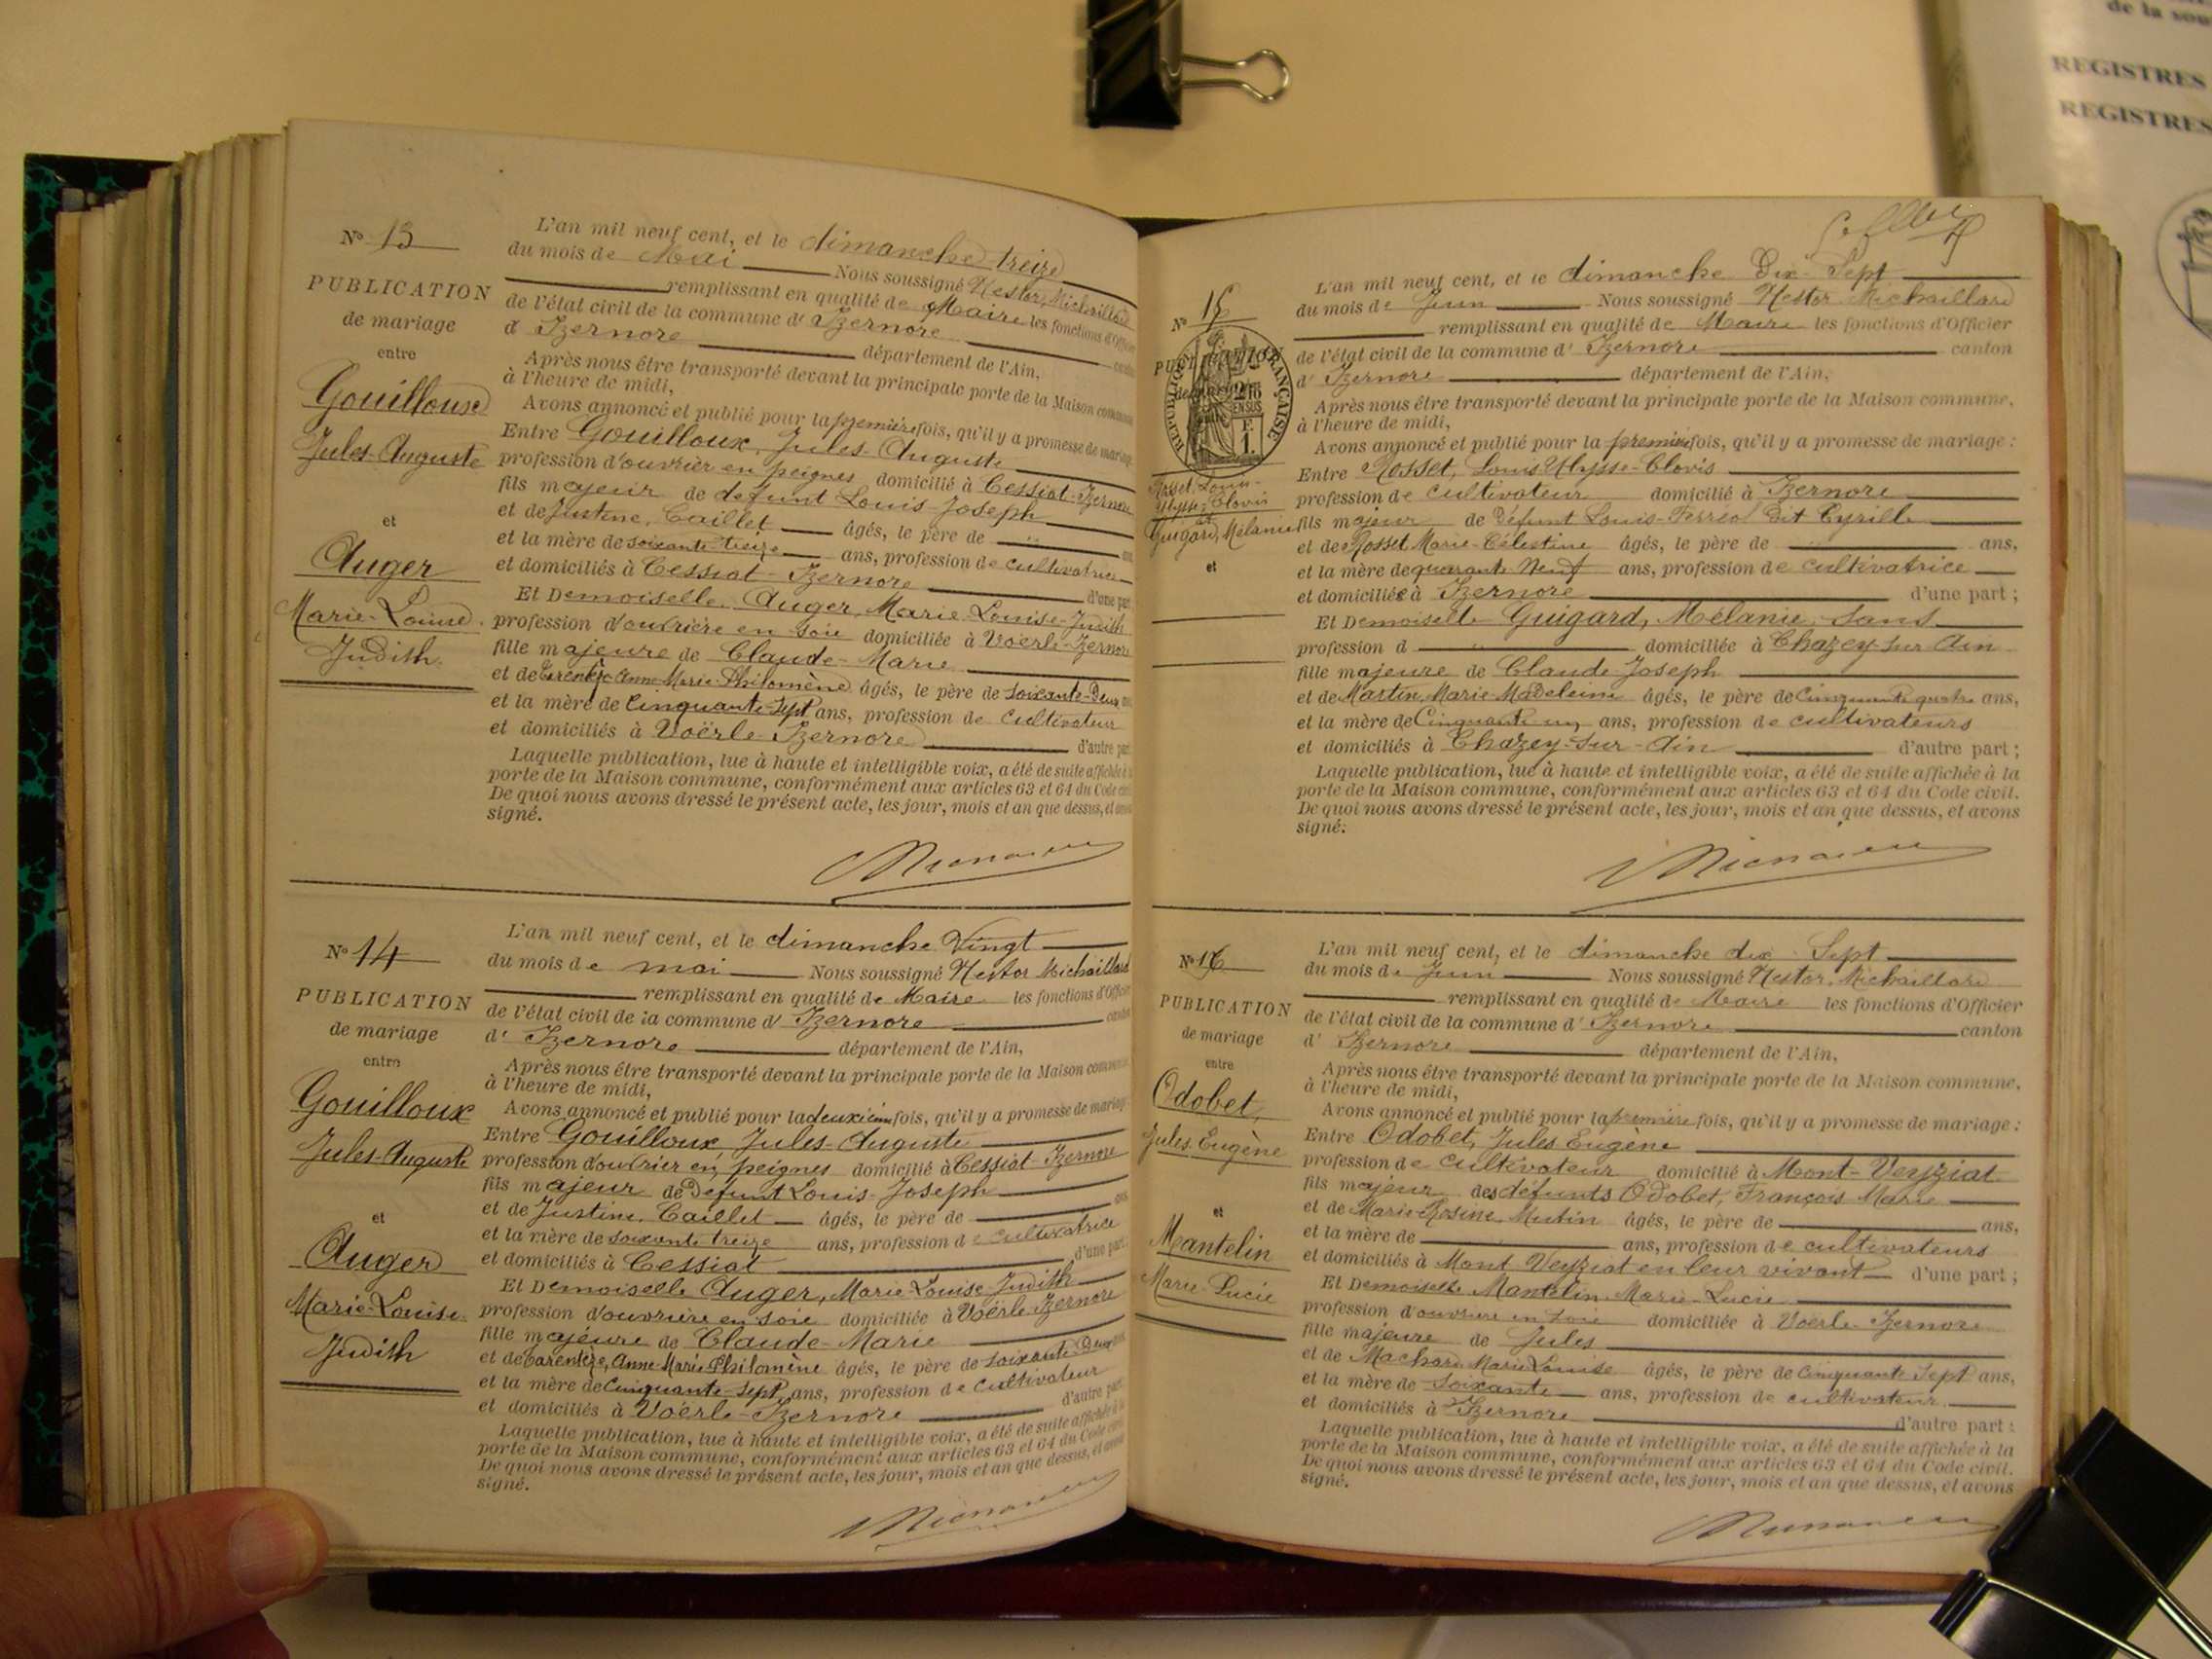 de la sou
REGISTRES
REGISTRES
N° 13
PUBLICATION
de mariage
entre
Gouilloux
Jules-Auguste
et
Auger
Marie-Louise
Judith
L'an mil neuf cent, et le dimanche treize
du mois de Mai Nous soussigné Nestor Michaillard
remplissant en qualité de Maire les fonctions d'Officier
de l'état civil de la commune d'Izernore canton
d'Izernore département de l'Ain,
Après nous être transporté devant la principale porte de la Maison commune
à l'heure de midi,
Avons annoncé et publié pour la première fois, qu'il y a promesse de mariage
Entre Gouilloux, Jules-Auguste
profession d'ouvrier en peignes domicilié à Cessiat-Izernore
fils majeur de défunt Louis-Joseph
et de Justine, Caillet âgés, le père de ans,
et la mère de soixante treize ans, profession de cultivatrice
et domiciliés à Cessiat-Izernore d'une part
Et Demoiselle Auger, Marie-Louise-Judith
profession d'ouvrière en soie domiciliée à Voërle-Izernore
fille majeure de Claude-Marie
et de Carentèze Anne-Marie-Philomène âgés, le père de soixante-Deux ans
et la mère de Cinquante-sept ans, profession de Cultivateur
et domiciliés à Voërle-Izernore d'autre part
Laquelle publication, lue à haute et intelligible voix, a été de suite affichée à la
porte de la Maison commune, conformément aux articles 63 et 64 du Code civil
De quoi nous avons dressé le présent acte, les jour, mois et an que dessus, et avons
signé.
N° 14
PUBLICATION
de mariage
entre
Gouilloux
Jules-Auguste
et
Auger
Marie-Louise
Judith
L'an mil neuf cent, et le dimanche Vingt
du mois de mai Nous soussigné Nestor Michaillard
remplissant en qualité de Maire les fonctions d'Officier
de l'état civil de la commune d'Izernore canton
d'Izernore département de l'Ain,
Après nous être transporté devant la principale porte de la Maison commune
à l'heure de midi,
Avons annoncé et publié pour la deuxième fois, qu'il y a promesse de mariage
Entre Gouilloux, Jules-Auguste
profession d'ouvrier en peignes domicilié à Cessiat Izernore
fils majeur de Défunt Louis-Joseph
et de Justine, Caillet âgés, le père de ans,
et la mère de soixante treize ans, profession de cultivatrice
et domiciliés à Cessiat d'une part
Et Demoiselle Auger, Marie-Louise-Judith
profession d'ouvrière en soie domiciliée à Voërle-Izernore
fille majeure de Claude-Marie
et de Carentèze, Anne-Marie Philomène âgés, le père de soixante Deux ans
et la mère de Cinquante-sept ans, profession de Cultivateur
et domiciliés à Voërle-Izernore d'autre part
Laquelle publication, lue à haute et intelligible voix, a été de suite affichée à la
porte de la Maison commune, conformément aux articles 63 et 64 du Code civil
De quoi nous avons dressé le présent acte, les jour, mois et an que dessus, et avons
signé.
N° 15
PUBLICATION
de mariage
RÉPUBLIQUE FRANÇAISE
EN SUS
Rosset, Louis-
Ulysse, Clovis
Guigard, Mélanie
et
L'an mil neuf cent, et le dimanche Dix-Sept
du mois de Juin Nous soussigné Nestor Michaillard
remplissant en qualité de Maire les fonctions d'Officier
de l'état civil de la commune d'Izernore canton
d'Izernore département de l'Ain,
Après nous être transporté devant la principale porte de la Maison commune,
à l'heure de midi,
Avons annoncé et publié pour la première fois, qu'il y a promesse de mariage :
Entre Rosset, Louis Ulysse-Clovis
profession de cultivateur domicilié à Izernore
fils majeur de Défunt Louis-Ferréol dit Cyrille
et de Rosset Marie-Célestine âgés, le père de ans,
et la mère de quarante Neuf ans, profession de cultivatrice
et domiciliée à Izernore d'une part ;
Et Demoiselle Guigard, Mélanie, sans
profession d domiciliée à Chazey-sur Ain
fille majeure de Claude-Joseph
et de Martin, Marie-Madeleine âgés, le père de Cinquante quatre ans,
et la mère de Cinquante un ans, profession de cultivateurs
et domiciliés à Chazey-sur-Ain d'autre part ;
Laquelle publication, lue à haute et intelligible voix, a été de suite affichée à la
porte de la Maison commune, conformément aux articles 63 et 64 du Code civil.
De quoi nous avons dressé le présent acte, les jour, mois et an que dessus, et avons
signé.
N° 16
PUBLICATION
de mariage
entre
Odobet,
Jules Eugène
et
Mantelin
Marie-Lucie
L'an mil neuf cent, et le dimanche dix-Sept
du mois de Juin Nous soussigné Nestor, Michaillard
remplissant en qualité de Maire les fonctions d'Officier
de l'état civil de la commune d'Izernore canton
d'Izernore département de l'Ain,
Après nous être transporté devant la principale porte de la Maison commune,
à l'heure de midi,
Avons annoncé et publié pour la première fois, qu'il y a promesse de mariage :
Entre Odobet, Jules Eugène
profession de cultivateur domicilié à Mont-Veyziat
fils majeur des défunts Odobet, François Marie
et de Marie-Rosine Mutin âgés, le père de ans,
et la mère de ans, profession de cultivateurs
et domiciliés à Mont Veyziat en leur vivant d'une part ;
Et Demoiselle Mantelin Marie-Lucie
profession d'ouvrière en soie domiciliée à Voërle-Izernore
fille majeure de Jules
et de Machard Marie Louise âgés, le père de Cinquante Sept ans,
et la mère de Soixante ans, profession de cultivateur
et domiciliés à Izernore d'autre part :
Laquelle publication, lue à haute et intelligible voix, a été de suite affichée à la
porte de la Maison commune, conformément aux articles 63 et 64 du Code civil.
De quoi nous avons dressé le présent acte, les jour, mois et an que dessus, et avons
signé.